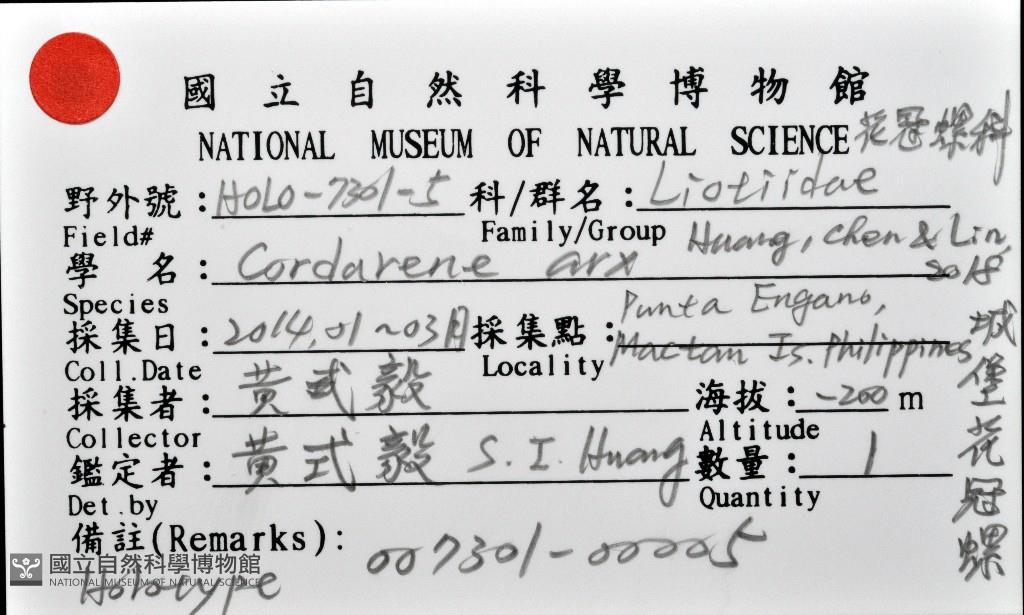 國立自然科學博物館
NATIONAL MUSEUM OF NATURAL SCIENCE 花冠螺科
野外號: HOLO-7301-5 科/群名: Liotiidae
Field# Family/Group Huang, Chen & Lin, 2018
學名: Cordarene arx
Species Punta Engano,
採集日: 2014.01~03月 採集點: Mactan Is. Philippines
Coll.Date Locality
採集者: 黃式毅 海拔: -200 m
Collector Altitude
鑑定者: 黃式毅 S. I. Huang 數量: 1
Det.by Quantity
備註(Remarks): 007301-00005
Holotype
城堡花冠螺
國立自然科學博物館
NATIONAL MUSEUM OF NATURAL SCIENCE